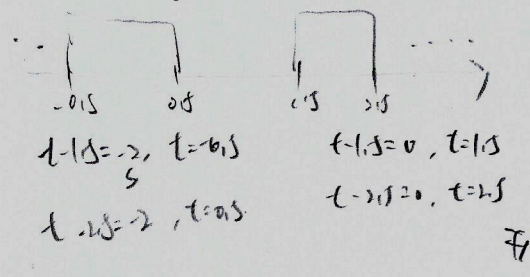 -0.5 0.5 1.5 2.5
t-1.5=-2, t=-0.5 t-1.5=0, t=1.5
t-2.5=-2, t=0.5 t-2.5=0, t=2.5